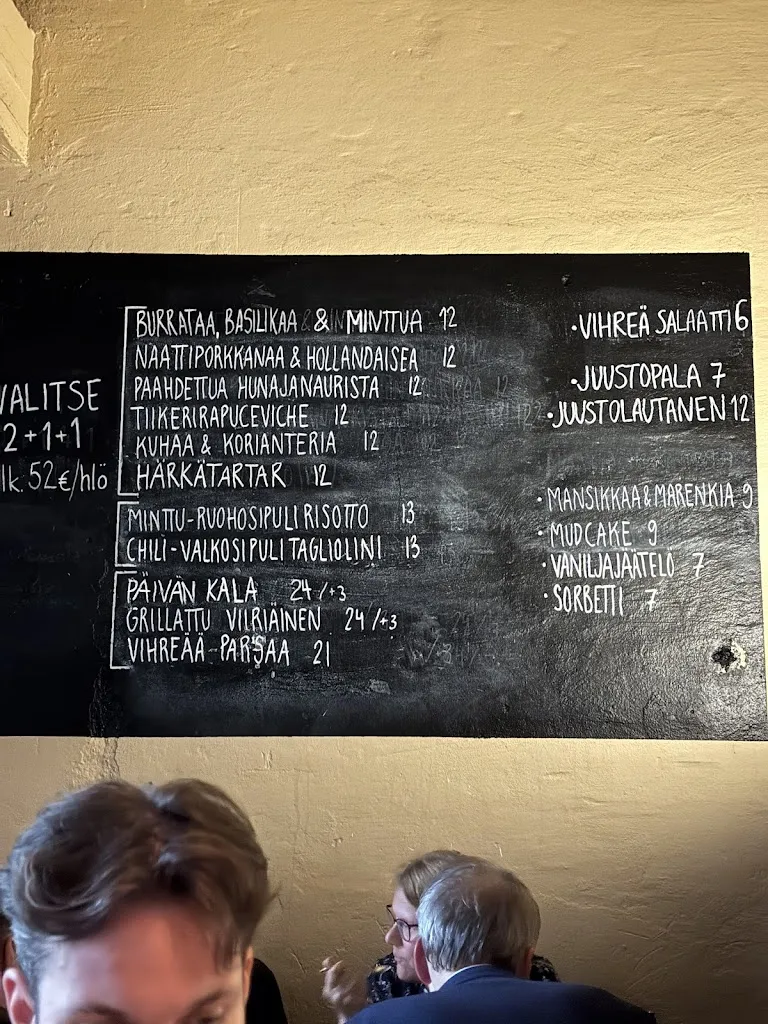 VALITSE
2+1+1
alk. 52€/hlö
BURRATAA, BASILIKAA & MINTTUA 12
NAATTIPORKKANAA & HOLLANDAISEA 12
PAAHDETTUA HUNAJANAURISTA 12
TIIKERIRAPUCEVICHE 12
KUHAA & KORIANTERIA 12
HÄRKÄTARTAR 12
MINTTU-RUOHOSIPULIRISOTTO 13
CHILI-VALKOSIPULITAGLIOLINI 13
PÄIVÄN KALA 24/+3
GRILLATTU VILRIÄINEN 24/+3
VIHREÄÄ PARSAA 21
·VIHREÄ SALAATTI 6
·JUUSTOPALA 7
·JUUSTOLAUTANEN 12
·MANSIKKAA & MARENKIA 9
·MUDCAKE 9
·VANILJAJÄÄTELÖ 7
·SORBETTI 7